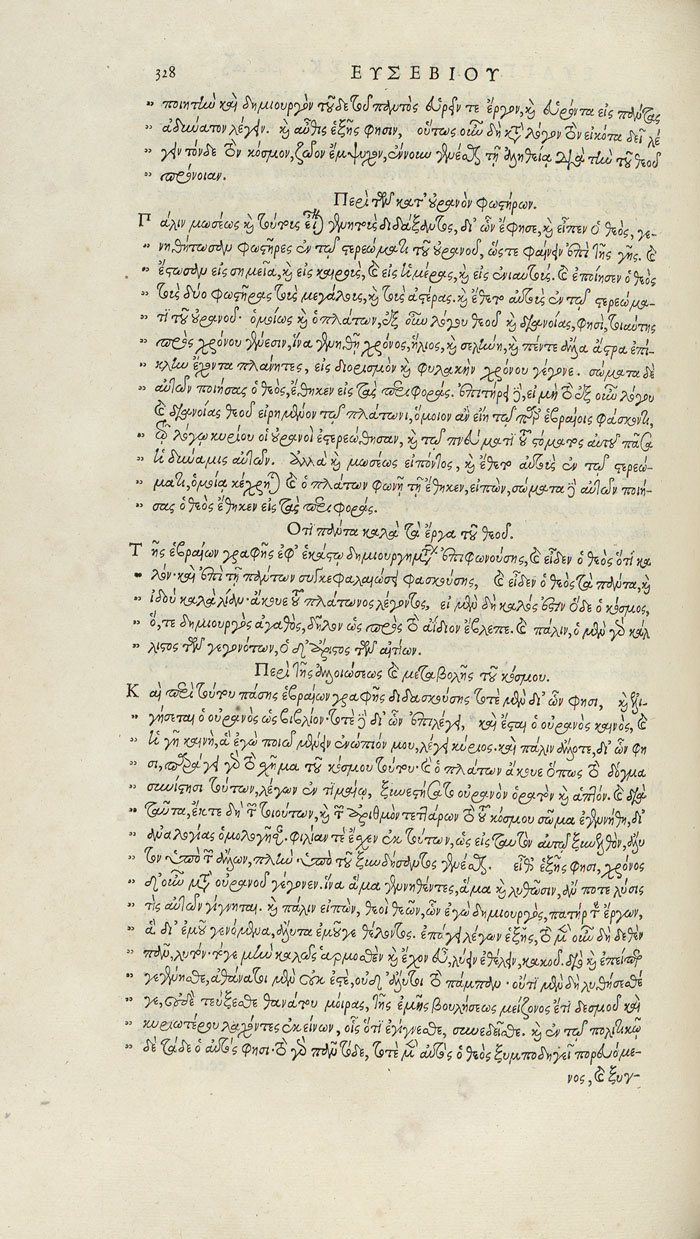 328 ΕΥΣΕΒΙΟΥ
„ ποιητὴν καὶ δημιουργὸν τοῦδε τοῦ παντὸς εὑρεῖν τε ἔργον, καὶ εὑρόντα εἰς πάντας
„ ἀδύνατον λέγειν. καὶ αὖθις ἑξῆς φησιν, οὕτως οὖν δὴ κατὰ λόγον τὸν εἰκότα δεῖ λέ
„ γειν τόνδε τὸν κόσμον, ζῶον ἔμψυχον, ἔννουν γενέσθαι τῇ ἀληθείᾳ διὰ τὴν τοῦ θεοῦ
„ πρόνοιαν.
Περὶ τῶν κατ' οὐρανὸν φωστήρων.
Πάλιν μωσέως καὶ τούτοις γενητοὺς διδάξαντος, δι' ὧν ἔφησε, καὶ εἶπεν ὁ θεός, γε-
„ νηθήτωσαν φωστῆρες ἐν τῷ στερεώματι τοῦ οὐρανοῦ, ὥστε φαίνειν ἐπὶ τῆς γῆς. καὶ
„ ἔστωσαν εἰς σημεῖα, καὶ εἰς καιροὺς, καὶ εἰς ἡμέρας, καὶ εἰς ἐνιαυτούς. καὶ ἐποίησεν ὁ θεὸς
„ τοὺς δύο φωστῆρας τοὺς μεγάλους, καὶ τοὺς ἀστέρας. καὶ ἔθετο αὐτοὺς ἐν τῷ στερεώμα-
„ τι τοῦ οὐρανοῦ· ὁμοίως καὶ ὁ πλάτων, ἐξ οὖν λόγου θεοῦ καὶ διανοίας, φησὶ, τοιαύτης
„ πρὸς χρόνου γένεσιν, ἵνα γενηθῇ χρόνος, ἥλιος, καὶ σελήνη, καὶ πέντε ἄλλα ἄστρα ἐπί-
„ κλην ἔχοντα πλανῆτες, εἰς διορισμὸν καὶ φυλακὴν χρόνου γέγονε. σώματα δὲ
„ αὐτῶν ποιήσας ὁ θεὸς, ἔθηκεν εἰς τὰς περιφοράς. ἐπιτήρει δὲ, εἰ μὴ τὸ ἐξ οὖν λόγου
καὶ διανοίας θεοῦ εἰρημένον τῷ πλάτωνι, ὅμοιον ἂν εἴη τῷ παρ' ἑβραίοις φάσκοντι,
„ τῷ λόγῳ κυρίου οἱ οὐρανοὶ ἐστερεώθησαν, καὶ τῷ πνεύματι τοῦ στόματος αὐτοῦ πᾶσα
„ ἡ δύναμις αὐτῶν. Ἀλλὰ καὶ μωσέως εἰπόντος, καὶ ἔθετο αὐτοὺς ἐν τῷ στερεώ-
„ ματι, ὁμοίᾳ κέχρηται καὶ ὁ πλάτων φωνῇ τῇ ἔθηκεν, εἰπὼν, σώματα δὲ αὐτῶν ποιή-
„ σας ὁ θεὸς ἔθηκεν εἰς τὰς περιφοράς.
Ὅτι πάντα καλὰ τὰ ἔργα τοῦ θεοῦ.
Τῆς ἑβραίων γραφῆς ἐφ' ἑκάστῳ δημιουργημάτων ἐπιφωνούσης, καὶ εἶδεν ὁ θεὸς ὅτι κα
„ λόν· καὶ ἐπὶ τῇ πάντων συγκεφαλαιώσει φασκούσης, καὶ εἶδεν ὁ θεὸς τὰ πάντα, καὶ
„ ἰδοὺ καλὰ λίαν· ἄκουε τοῦ πλάτωνος λέγοντος, εἰ μὲν δὴ καλός ἐστιν ὅδε ὁ κόσμος,
„ ὅ, τε δημιουργὸς ἀγαθὸς, δῆλον ὡς πρὸς τὸ ἀΐδιον ἔβλεπε. καὶ πάλιν, ὁ μὲν γὰρ κάλ
„ λιστος τῶν γεγονότων, ὁ δ' ἄριστος τῶν αἰτίων.
Περὶ τῆς ἀλλοιώσεως καὶ μεταβολῆς τοῦ κόσμου.
Καὶ περὶ τούτου πάσης ἑβραίων γραφῆς διδασκούσης τοτὲ μὲν δι' ὧν φησι, καὶ εἱλι-
„ γήσεται ὁ οὐρανὸς ὡς βιβλίον· τοτὲ δὲ δι' ὧν ἐπιλέγει, καὶ ἔσται ὁ οὐρανὸς καινὸς, καὶ
„ ἡ γῆ καινὴ, ἃ ἐγὼ ποιῶ μένειν ἐνώπιόν μου, λέγει κύριος. καὶ πάλιν ἄλλοτε, δι' ὧν φη
„ σι, παράγει γὰρ τὸ σχῆμα τοῦ κόσμου τούτου· καὶ ὁ πλάτων ἄκουε ὅπως τὸ δόγμα
„ συνίστησι τούτων, λέγων ἐν τιμαίῳ, ξυνεστήσατο οὐρανὸν ὁρατὸν καὶ ἁπτόν. καὶ διὰ
„ ταῦτα, ἔκ τε δὴ τῶν τοιούτων, καὶ τὸν ἀριθμὸν τεττάρων τὸ τοῦ κόσμου σῶμα ἐγεννήθη, δι'
„ ἀναλογίας ὁμολογῆσαν. φιλίαν τὲ ἔχειν ἐκ τούτων, ὡς εἰς ταὐτὸν αὐτῷ ξυνελθὸν, ἄλυ
„ τον ὑπὸ τῶν ἄλλων, πλὴν ὑπὸ τοῦ ξυνδήσαντος γενέσθαι. εἶθ' ἑξῆς φησι, χρόνος
„ δ' οὖν μετ' οὐρανοῦ γέγονεν. ἵνα ἅμα γεννηθέντες, ἅμα καὶ λυθῶσιν, ἄν ποτε λύσις
„ τις αὐτῶν γίγνηται. καὶ πάλιν εἰπὼν, θεοὶ θεῶν, ὧν ἐγὼ δημιουργὸς, πατήρ τε ἔργων,
„ ἃ δι' ἐμοῦ γενόμενα, ἄλυτα ἐμοῦ γε θέλοντος. ἐπάγει λέγων ἑξῆς, τὸ μὲν οὖν δὴ δεθὲν
„ πᾶν, λυτόν· τό γε μὴν καλῶς ἁρμοσθὲν καὶ ἔχον εὖ, λύειν ἐθέλειν, κακοῦ. διὸ καὶ ἐπείπερ
„ γεγένησθε, ἀθάνατοι μὲν οὐκ ἐστὲ, οὐδ' ἄλυτοι τὸ πάμπαν· οὔτι μὲν δὴ λυθήσεσθέ
„ γε, οὐδὲ τεύξεσθε θανάτου μοίρας, τῆς ἐμῆς βουλήσεως μείζονος ἔτι δεσμοῦ καὶ
„ κυριωτέρου λαχόντες ἐκείνων, οἷς ὅτε ἐγίγνεσθε, συνεδεῖσθε. καὶ ἐν τῷ πολιτικῷ
„ δὲ τάδε ὁ αὐτός φησι· τὸ γὰρ πᾶν τόδε, τοτὲ μὲν αὐτὸς ὁ θεὸς ξυμποδηγεῖ πορευόμε-
νος, καὶ ξυγ-